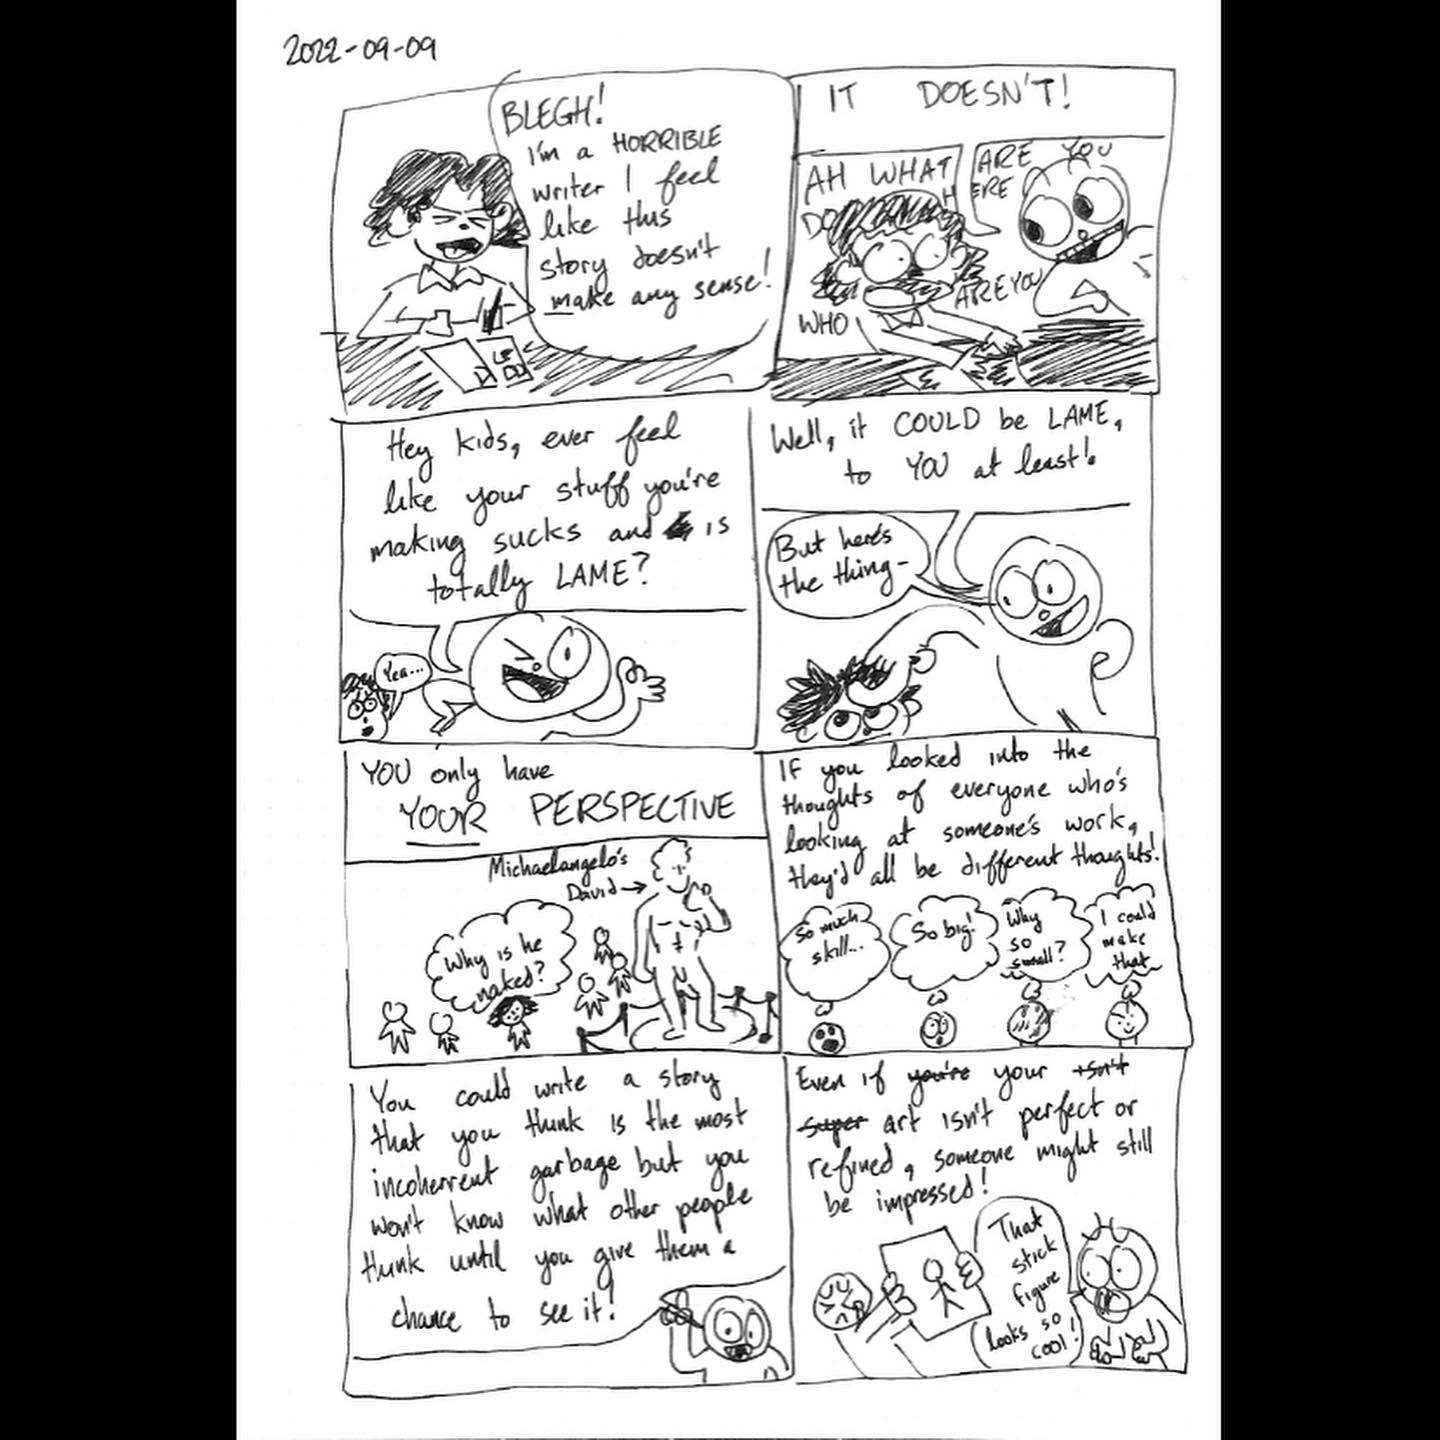 2022-09-09
BLEGH!
I'm a HORRIBLE
writer I feel
like this
story doesn't
make any sense!
IT DOESN'T!
AH WHAT
WHO
ARE YOU
ARE YOU
Hey kids, ever feel
like your stuff you're
making sucks and is
totally LAME?
Yea...
Well, it COULD be LAME,
to YOU at least!
But here's
the thing-
YOU only have
YOUR PERSPECTIVE
Michaelangelo's
David→
Why is he
naked?
IF you looked into the
thoughts of everyone who's
looking at someone's work,
they'd all be different thoughts!
So much
skill...
So big!
Why
so
small?
I could
make
that
You could write a story
that you think is the most
incoherrent garbage but you
won't know what other people
think until you give them a
chance to see it!
Even if you're your isn't
super art isn't perfect or
refined, someone might still
be impressed!
That
stick
figure
looks so
cool!